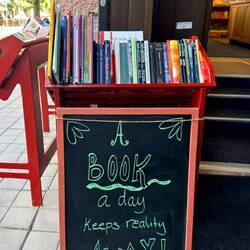 A
BOOK
a day
keeps reality
AWAY!